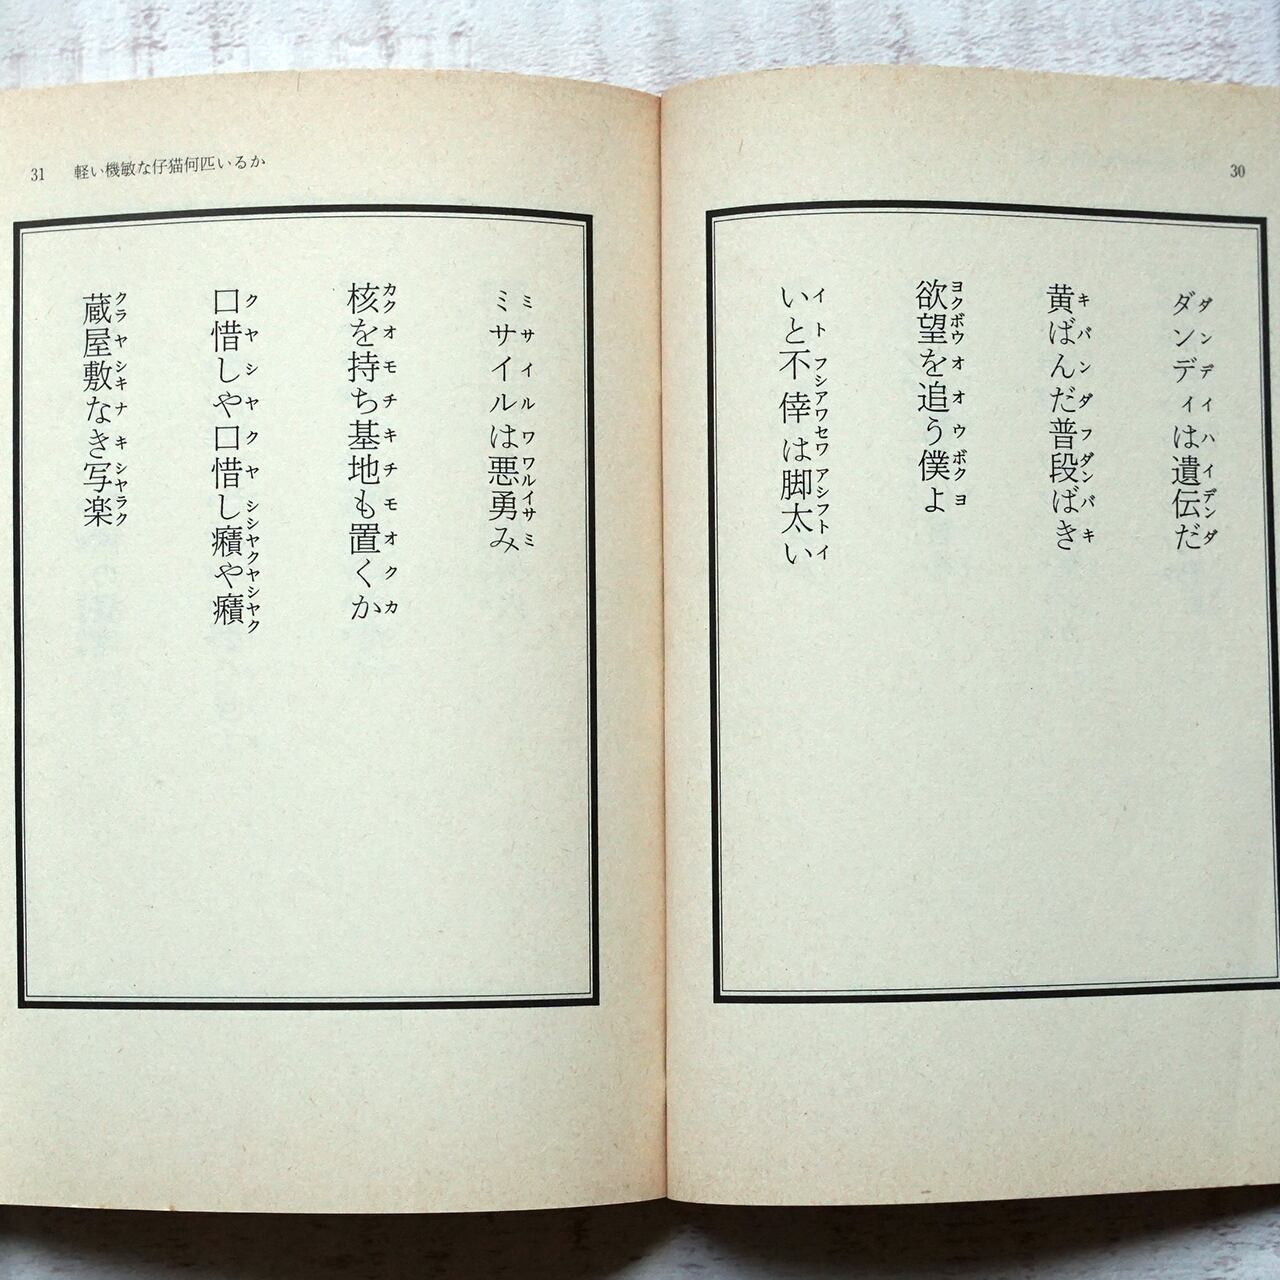 30
ダンディは遺伝だ
ダンデイハイデンダ
黄ばんだ普段ばき
キバンダフダンバキ
欲望を追う僕よ
ヨクボウオオウボクヨ
いと不倖は脚太い
イトフシアワセワアシフトイ
31 軽い機敏な仔猫何匹いるか
ミサイルは悪勇み
ミサイルワワルイサミ
核を持ち基地も置くか
カクオモチキチモオクカ
口惜しや口惜し癪や癪
クヤシヤクヤシシヤクヤシヤク
蔵屋敷なき写楽
クラヤシキナキシヤラク